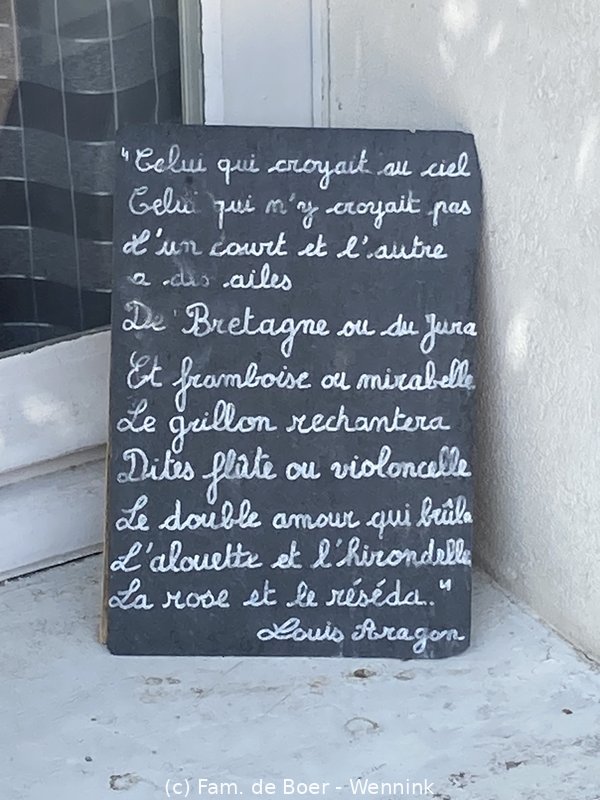 "Celui qui croyait au ciel
Celui qui n'y croyait pas
L'un court et l'autre
a des ailes
De Bretagne ou du Jura
Et framboise ou mirabelle
Le grillon rechantera
Dites flûte ou violoncelle
Le double amour qui brûla
L'alouette et l'hirondelle
La rose et le réséda."
Louis Aragon
(c) Fam. de Boer - Wennink